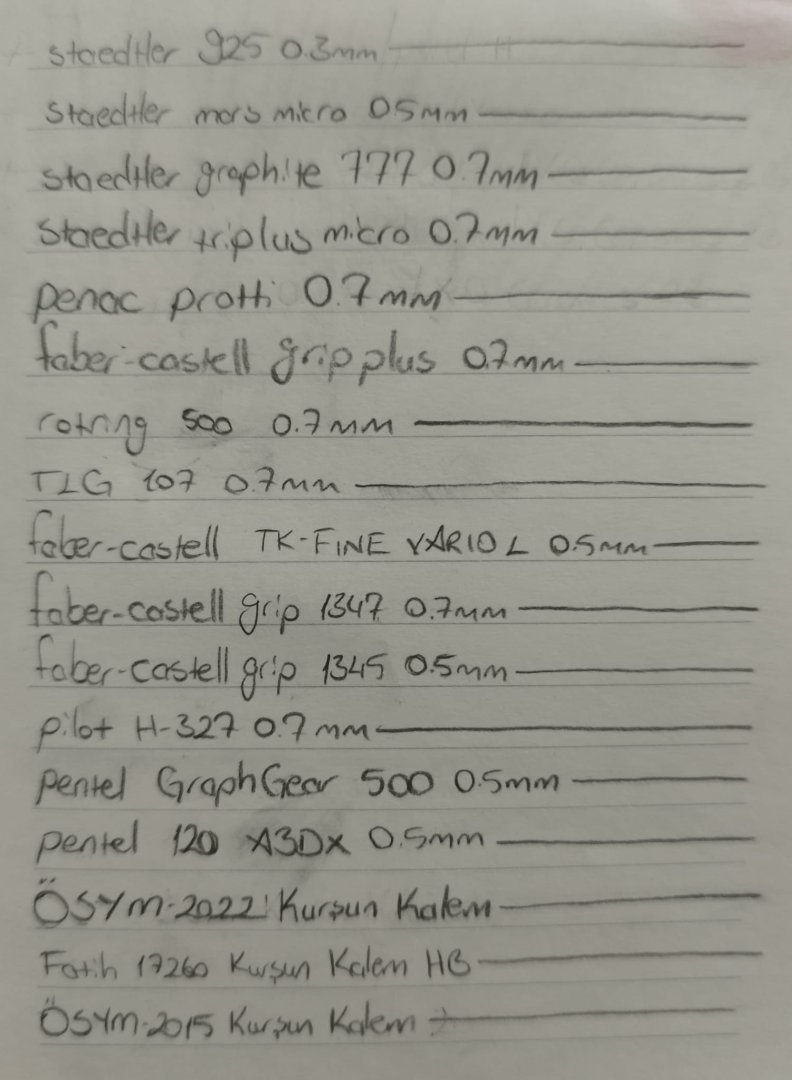 staedtler 925 0.3mm
staedtler mars micro 05mm
staedtler graphite 777 0.7mm
staedtler triplus micro 0.7mm
penac protti 0.7mm
faber-castell grip plus 0.7mm
rotring 500 0.7mm
TLG 107 0.7mm
faber-castell TK-FINE VARIO L 0.5mm
faber-castell grip 1347 0.7mm
faber-castell grip 1345 0.5mm
pilot H-327 0.7mm
pentel GraphGear 500 0.5mm
pentel 120 A3DX 0.5mm
ÖSYM-2022 Kurşun Kalem
Fatih 17260 Kurşun Kalem HB
ÖSYM-2015 Kurşun Kalem